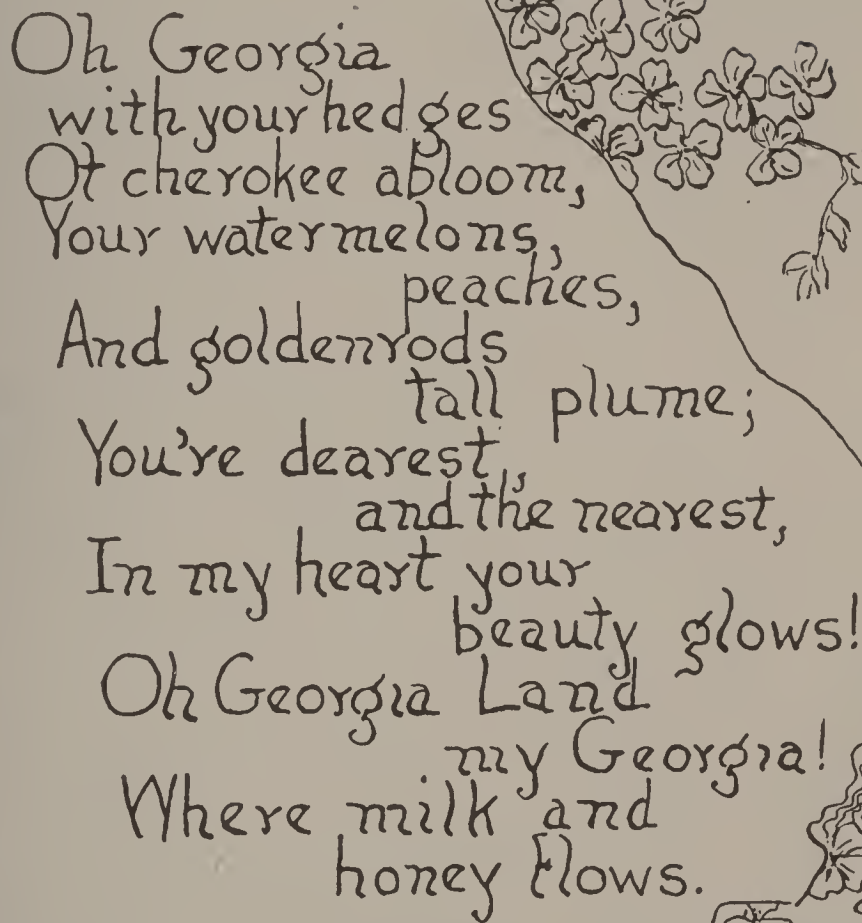 Oh Georgia
with your hedges
Of cherokee abloom,
Your watermelons,
peaches,
And goldenrods
tall plume;
You're dearest,
and the nearest,
In my heart your
beauty glows!
Oh Georgia Land
my Georgia!
Where milk and
honey flows.